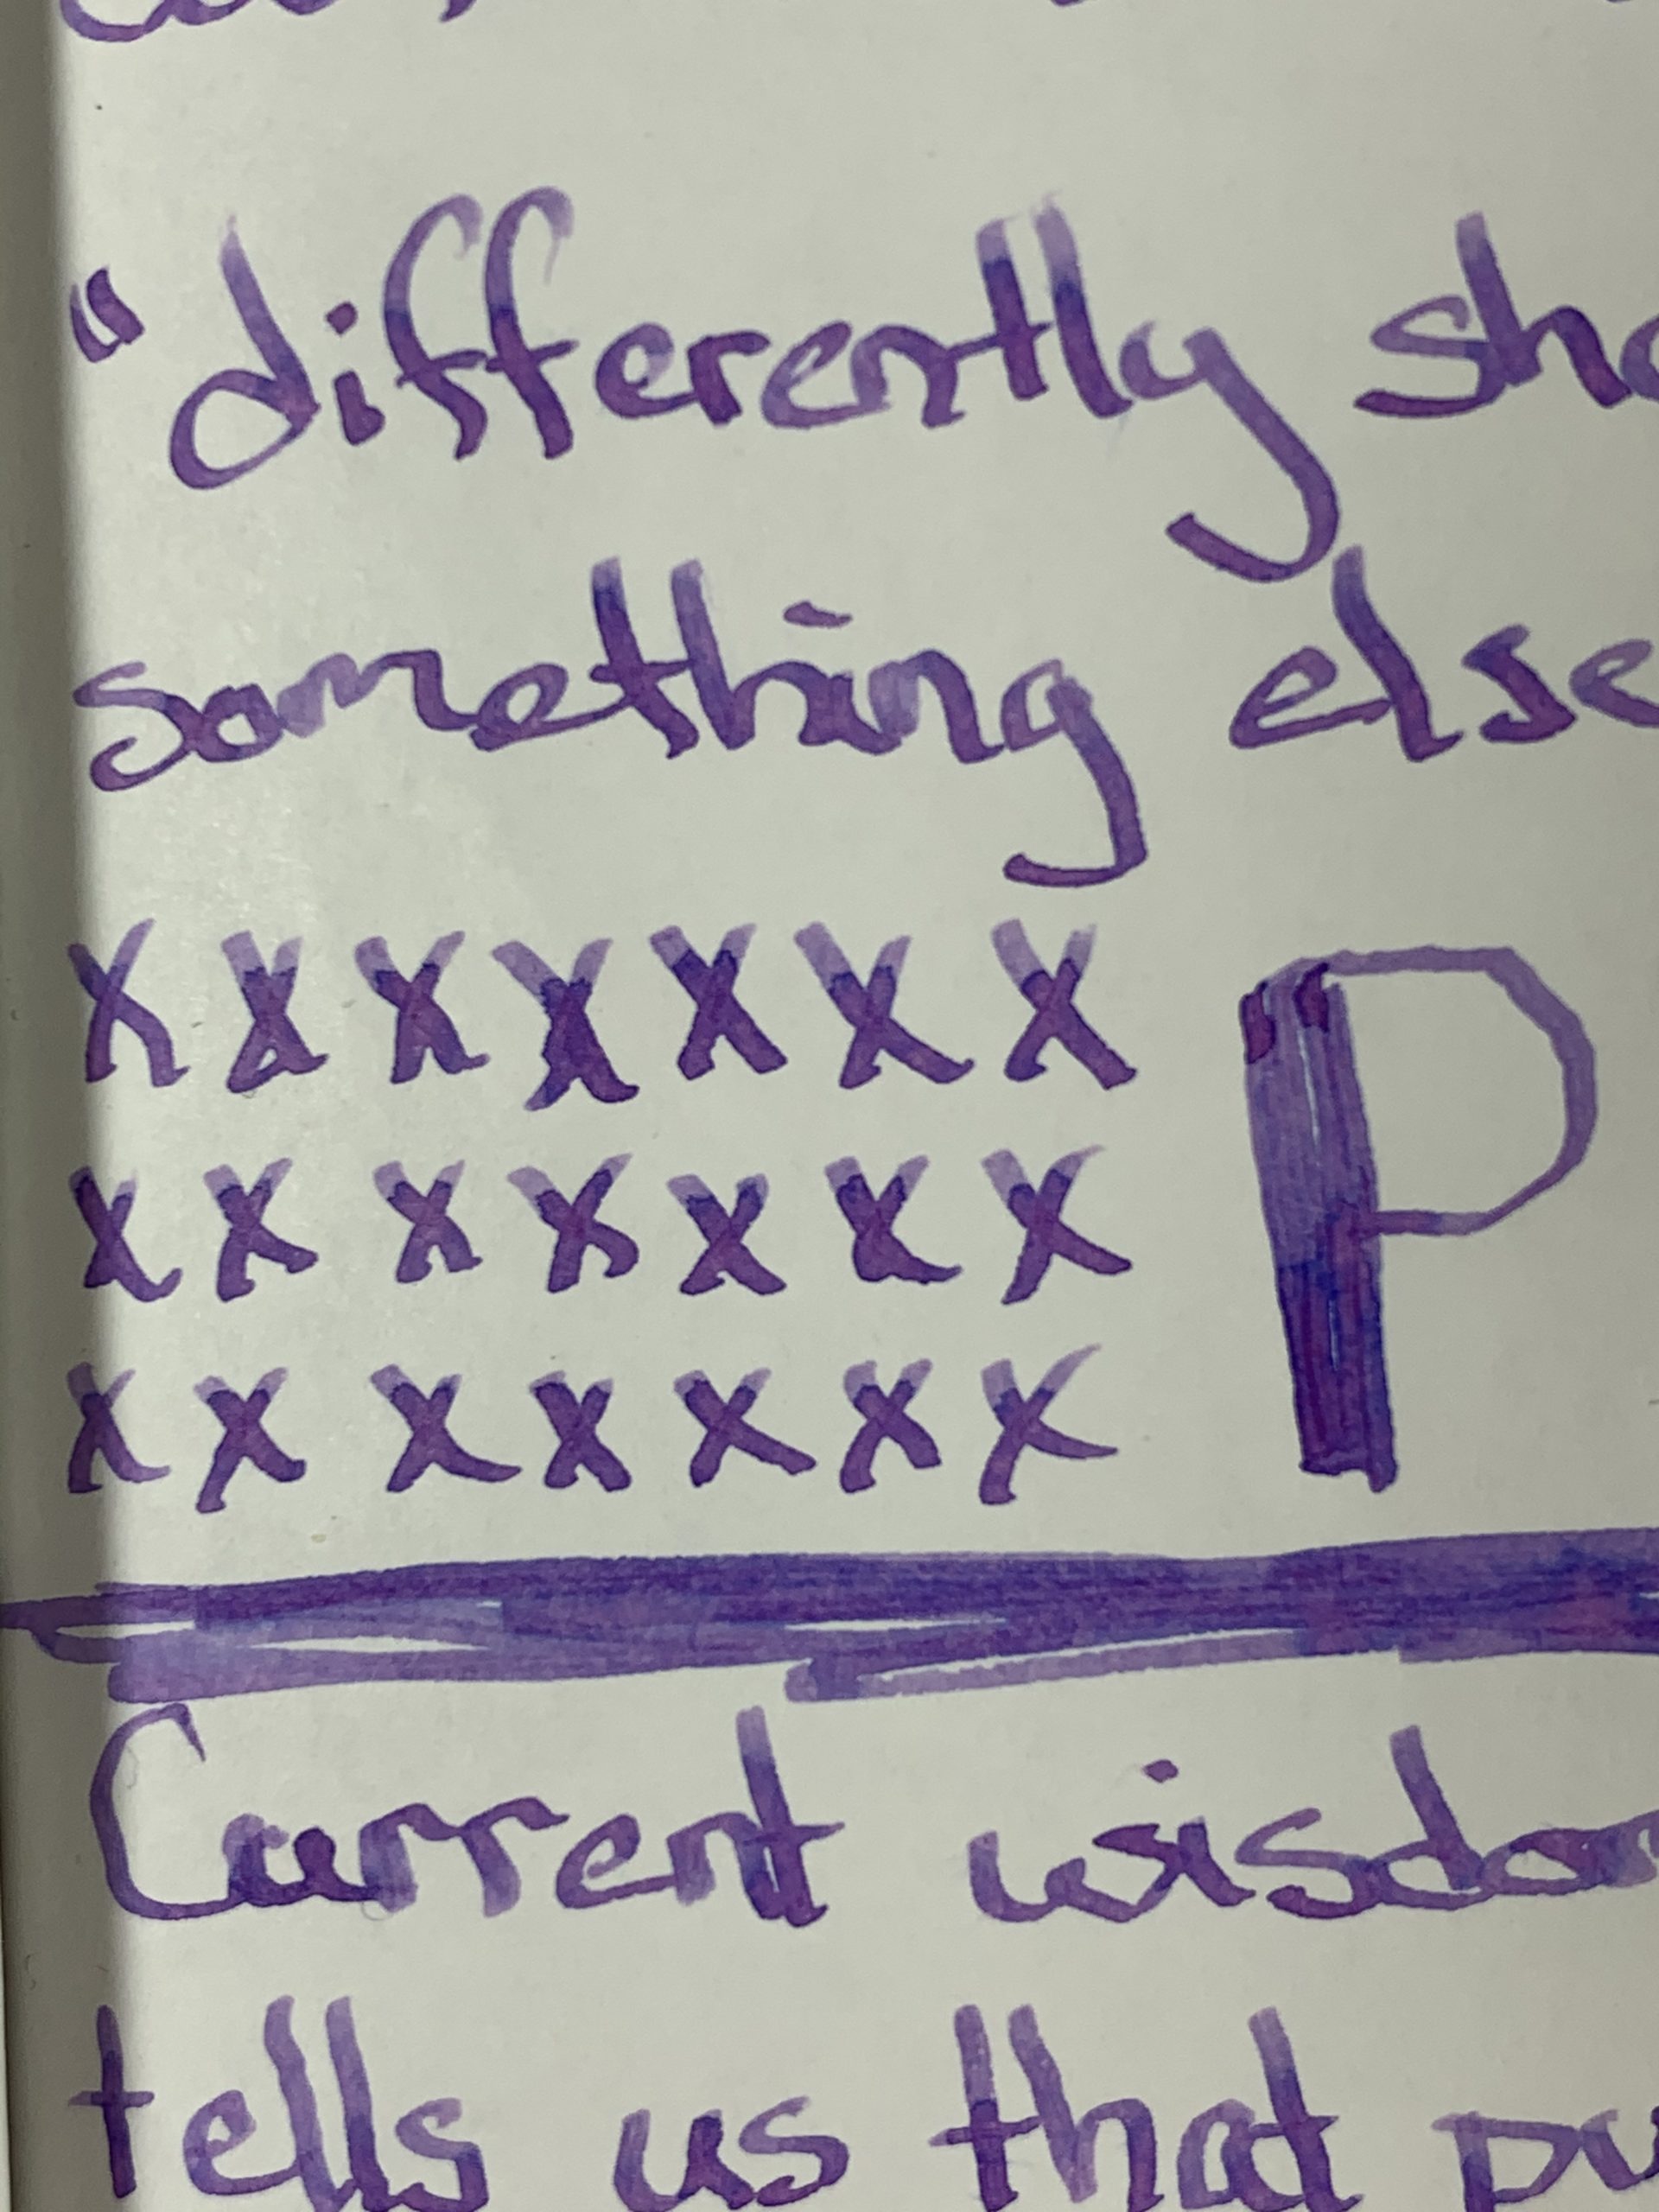 "differently
something else
x x x x x x x P
x x x x x x x
x x x x x x x
Current
tells us that